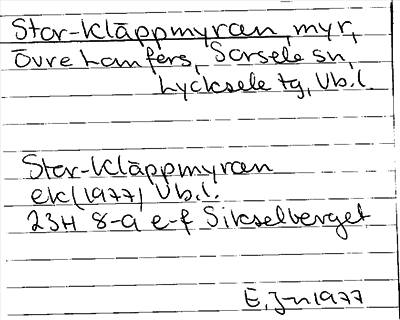 Stor-Kläppmyran, myr,
Övre Lamfers, Sorsele sn,
Lycksele tg, Vb.l.
Stor-Kläppmyran
ek (1977) Vb.l.
23H 8-9 e-f Sikselberget
E, Jn 1977